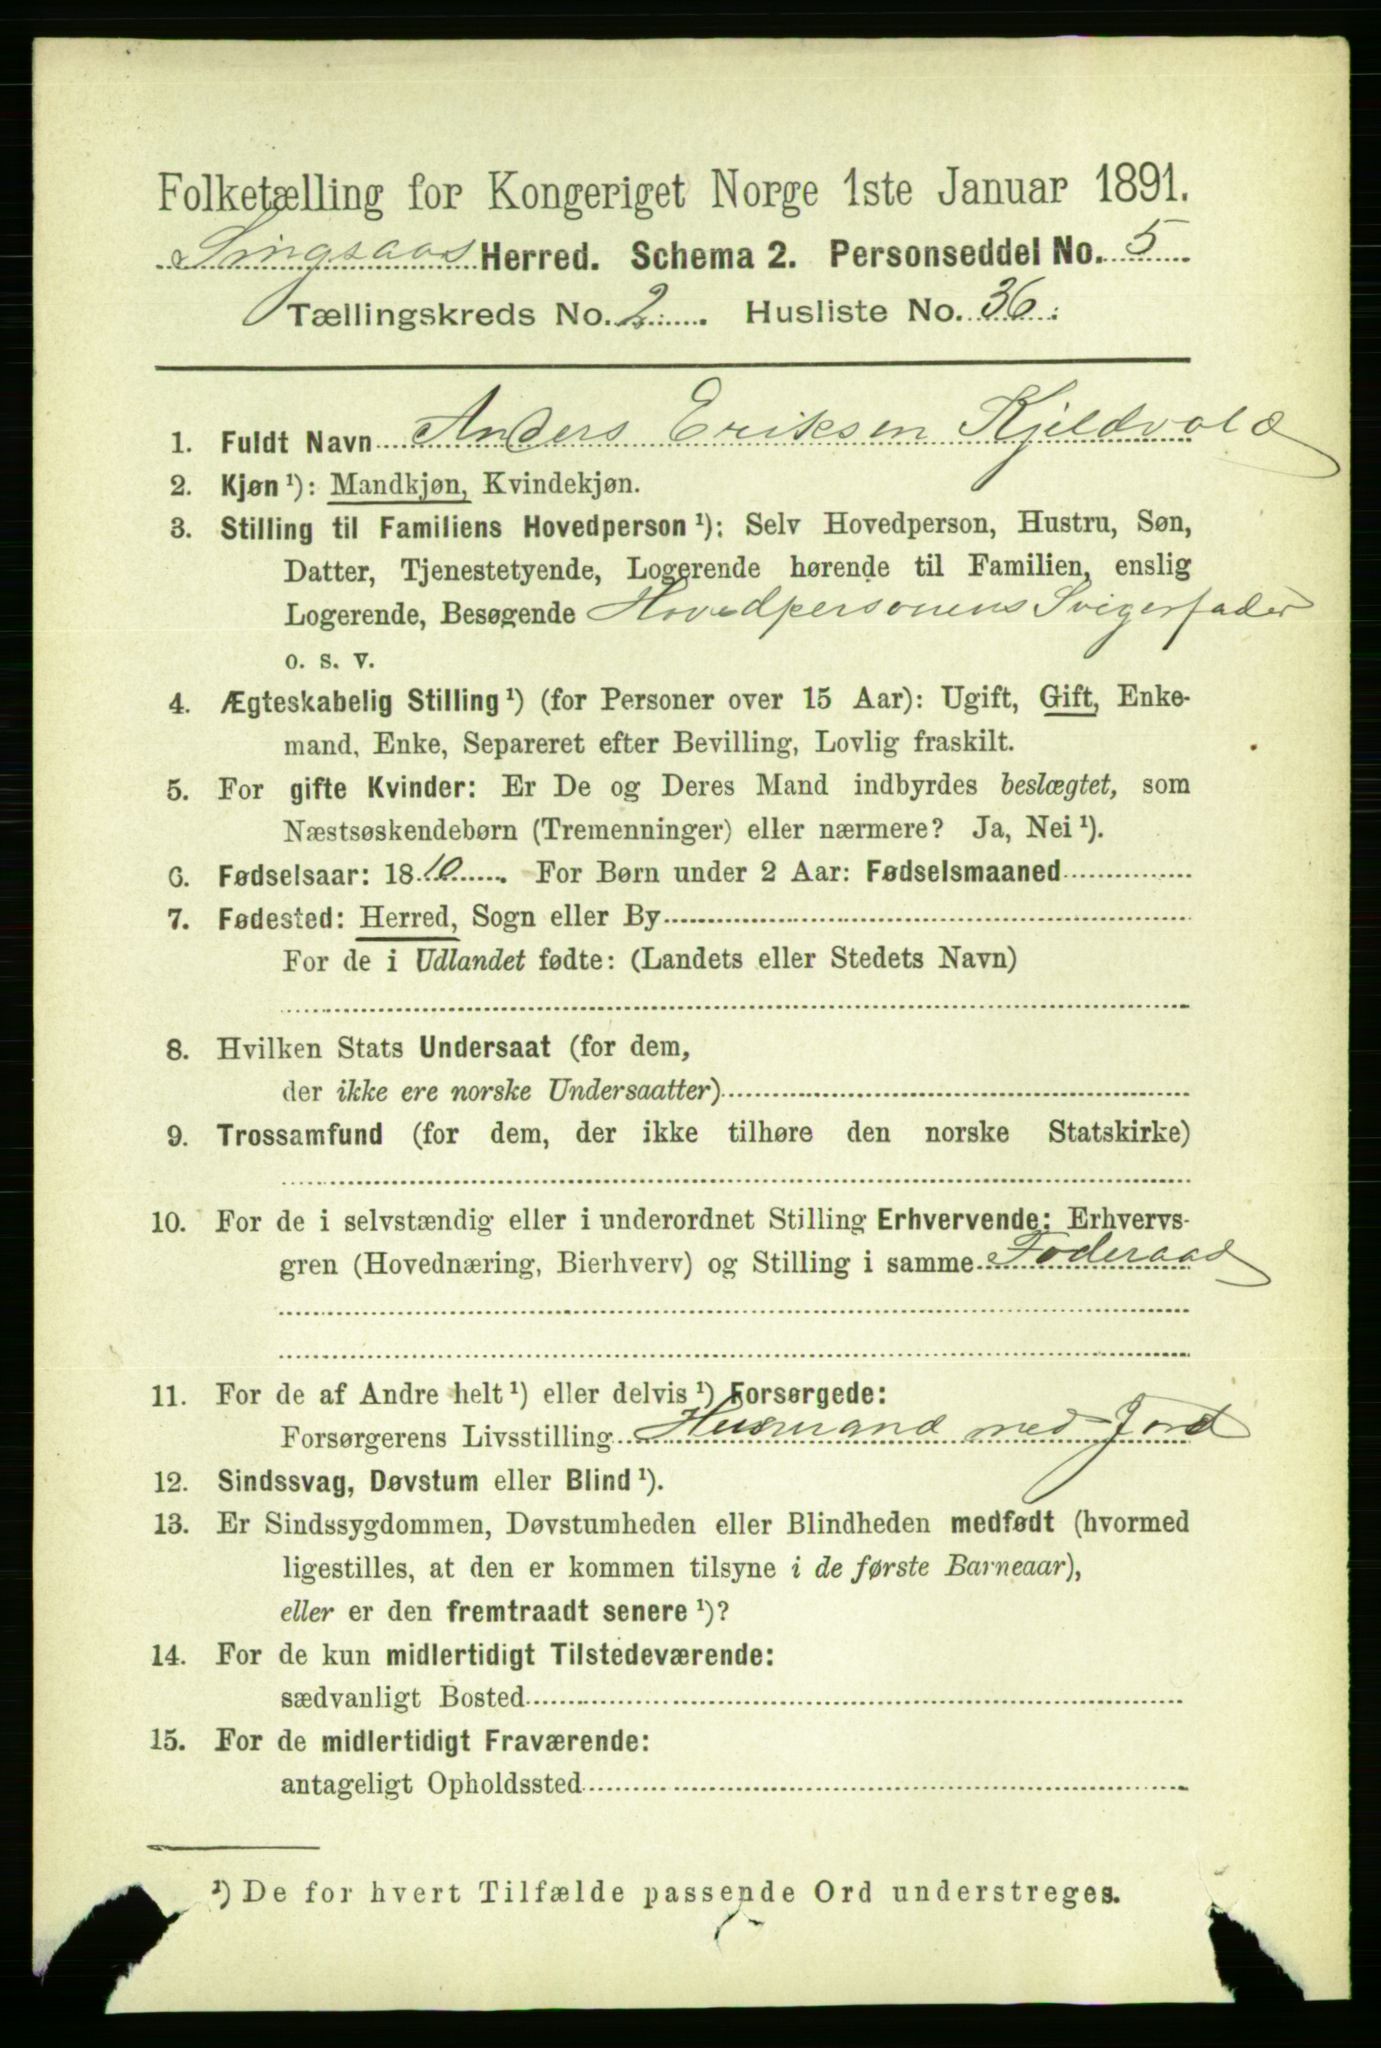 Folketælling for Kongeriget Norge 1ste Januar 1891.
Singsaas Herred. Schema 2. Personseddel No. 5
Tællingskreds No. 2. Husliste No. 36.
1. Fuldt Navn Anders Eriksen Kjeldvold
2. Kjøn ¹): Mandkjøn, Kvindekjøn.
3. Stilling til Familiens Hovedperson ¹): Selv Hovedperson, Hustru, Søn,
Datter, Tjenestetyende, Logerende hørende til Familien, enslig
Logerende, Besøgende Hovedpersonens Svigerfader
o. s. v.
4. Ægteskabelig Stilling ¹) (for Personer over 15 Aar): Ugift, Gift, Enke-
mand, Enke, Separeret efter Bevilling, Lovlig fraskilt.
5. For gifte Kvinder: Er De og Deres Mand indbyrdes beslægtet, som
Næstsøskendebørn (Tremenninger) eller nærmere? Ja, Nei ¹).
6. Fødselsaar: 1810. For Børn under 2 Aar: Fødselsmaaned
7. Fødested: Herred, Sogn eller By
For de i Udlandet fødte: (Landets eller Stedets Navn)
8. Hvilken Stats Undersaat (for dem,
der ikke ere norske Undersaatter)
9. Trossamfund (for dem, der ikke tilhøre den norske Statskirke)
10. For de i selvstændig eller i underordnet Stilling Erhvervende: Erhvervs-
gren (Hovednæring, Bierhverv) og Stilling i samme Foderaad
11. For de af Andre helt ¹) eller delvis ¹) Forsørgede:
Forsørgerens Livsstilling Husmand med Jord
12. Sindssvag, Døvstum eller Blind ¹).
13. Er Sindssygdommen, Døvstumheden eller Blindheden medfødt (hvormed
ligestilles, at den er kommen tilsyne i de første Barneaar),
eller er den fremtraadt senere ¹)?
14. For de kun midlertidigt Tilstedeværende:
sædvanligt Bosted
15. For de midlertidigt Fraværende:
antageligt Opholdssted
¹) De for hvert Tilfælde passende Ord understreges.